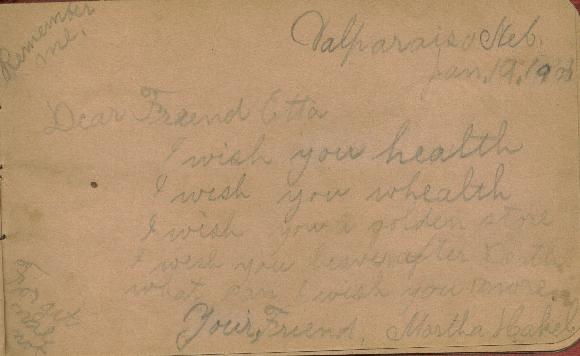 Remember
me.
Valparaiso Neb.
Jan. 19, 19
Dear Freend Otta
I wish you health
I wish you whealth
I wish you a golden store
I wish you heaven after Earth
what can I wish you more
Your Freend, Martha
For get
me
not